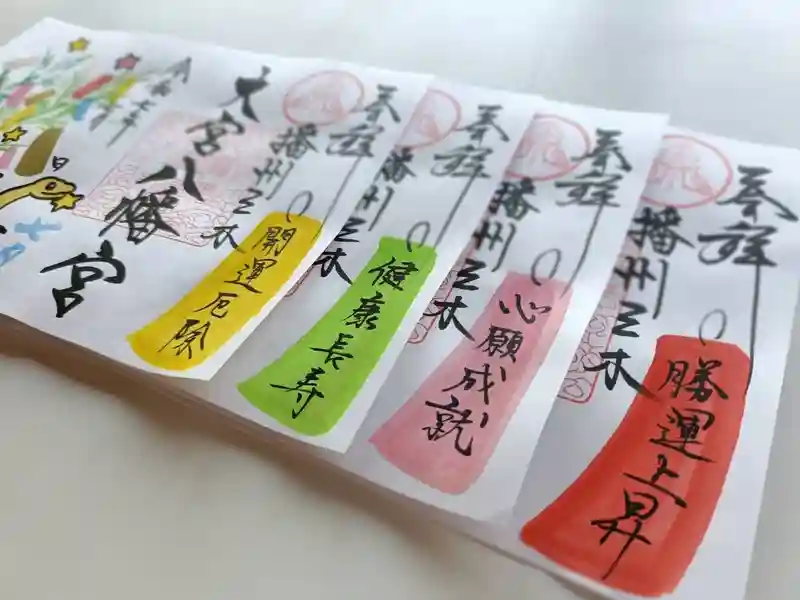 奉拝
播州三木
勝運上昇
奉拝
播州三木
心願成就
奉拝
播州三木
健康長寿
奉拝
播州三木
開運厄除
大宮八幡宮
令和七年
七月
日